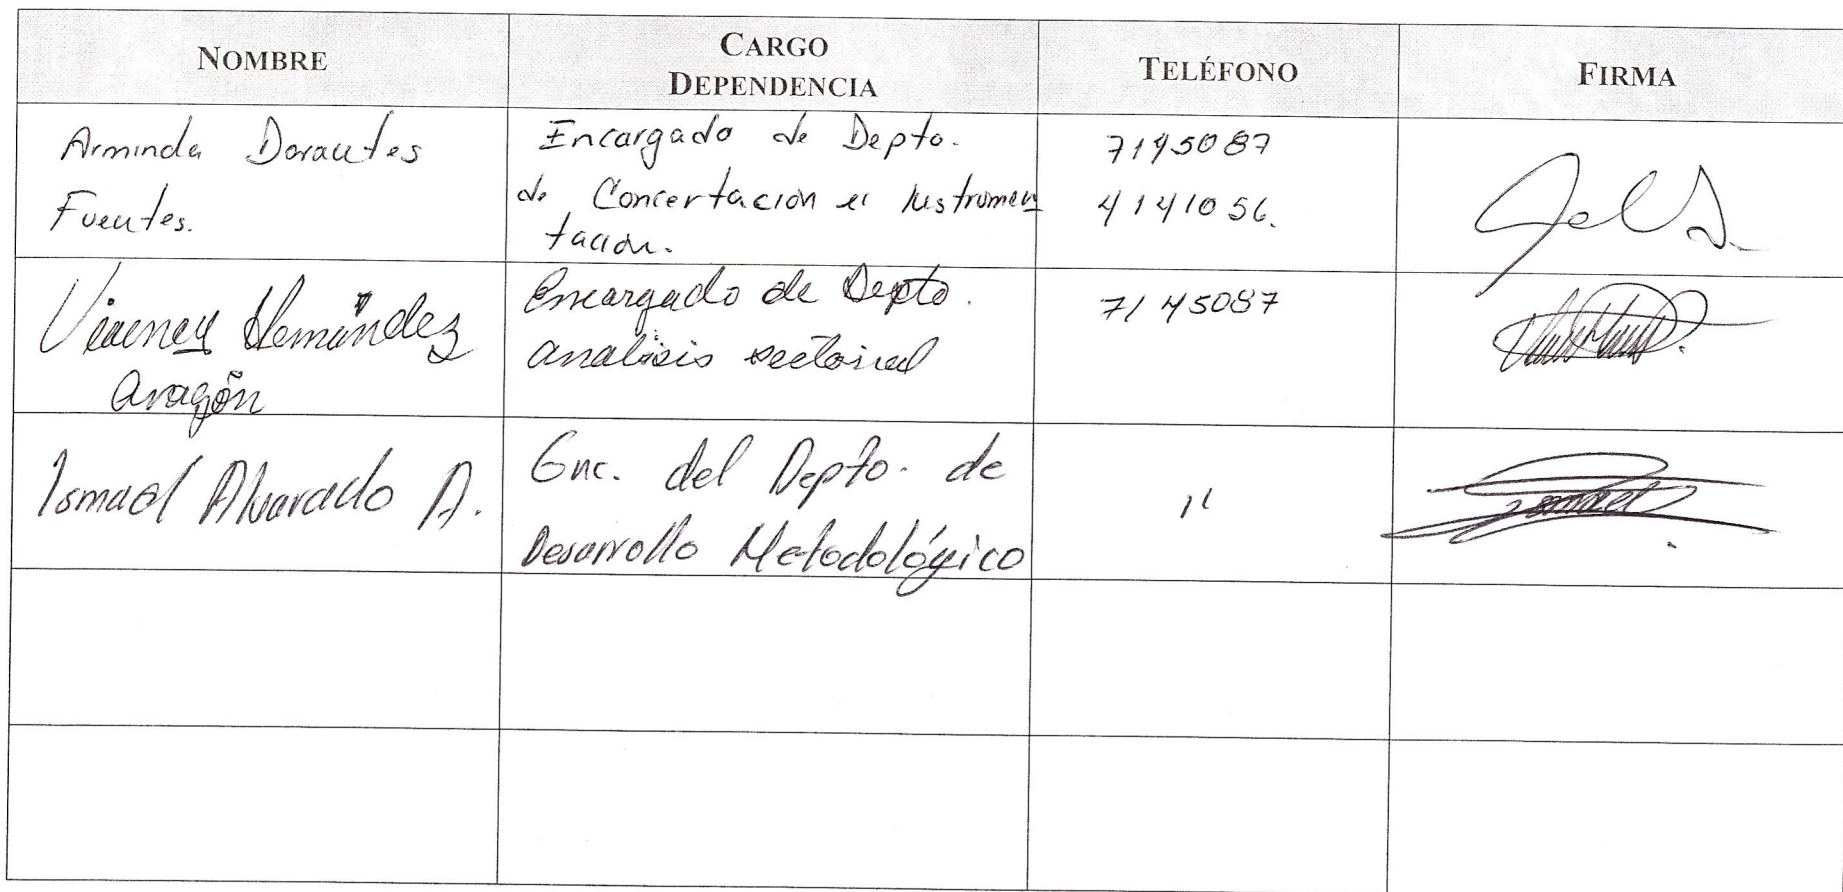 NOMBRE
CARGO
DEPENDENCIA
TELÉFONO
FIRMA
Arminda Dorantes
Fuentes.
Encargado de Depto.
de Concertación e Instrumen
tación.
7145087
4141056.
Hernández
Aragón
Encargado de Depto.
analisis sectorial
7145087
Ismael Alvarado A.
Enc. del Depto. de
Desarrollo Metodológico
"